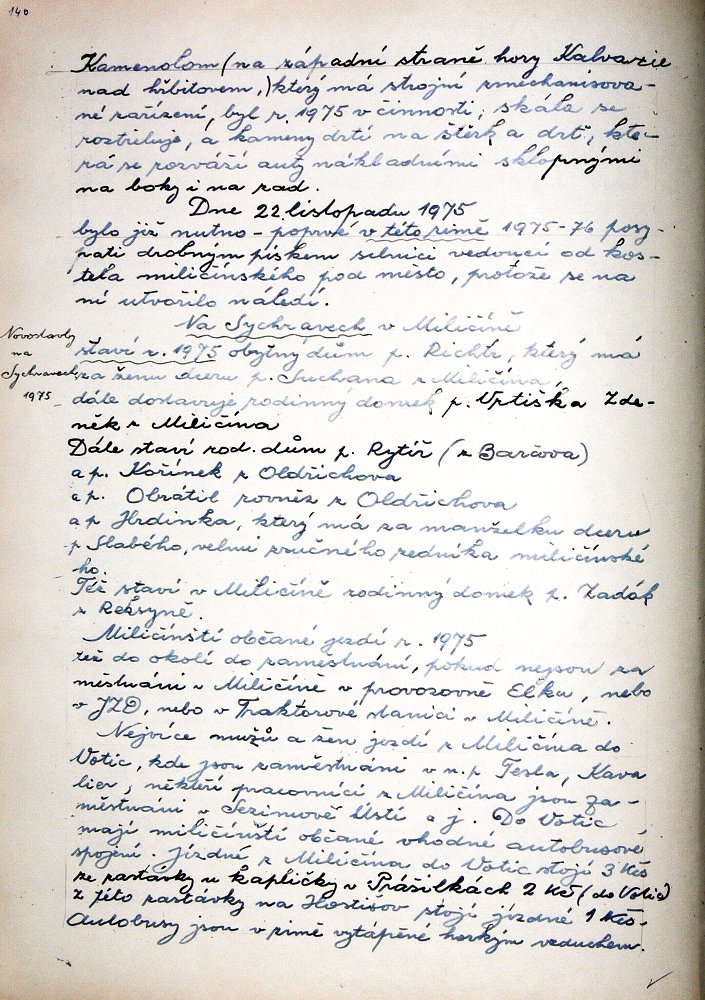 140
Kamenolom (na západní straně hory Kalvarie
nad hřbitovem,) který má strojní zmechanisova-
né zařízení, byl r. 1975 v činnosti; skála se
rozstřeluje, a kameny drtí na štěrk a drť, kte-
rá se rozváží auty nákladními sklopnými
na boky i na zad.
Dne 22. listopadu 1975
bylo již nutno - poprvé v této zimě 1975-76 posy-
pati drobným pískem silnici vedoucí od kos-
tela miličínského pod město, protože se na
ní utvořilo náledí.
Na Sychravech v Miličíně
Novostavby
na
Sychravech
1975
staví r. 1975 obytný dům p. Richtr, který má
za ženu dceru p. Suchana z Miličína,
dále dostavuje rodinný domek p. Vrtiška Zde-
něk z Miličína
Dále staví rod. dům p. Rytíř (z Barčova)
a p. Kořínek z Oldřichova
a p. Obrátil rovněž z Oldřichova
a p Hrdinka, který má za manželku dceru
p Slabého, velmi zručného zedníka miličínské
ho.
Též staví v Miličíně rodinný domek p. Zadák
z Reksyně.
Miličínští občané jezdí r. 1975
též do okolí do zaměstnání, pokud nejsou za
městnáni v Miličíně v provozovně Elku, nebo
v JZD, nebo v Traktorové stanici v Miličíně.
Nejvíce mužů a žen jezdí z Miličína do
Votic, kde jsou zaměstnáni v n.p Tesla, Kava
lier, někteří pracovníci z Miličína jsou za-
městnáni v Sezimově Ústí a j. Do Votic
mají miličínští občané vhodné autobusové
spojení. Jízdné z Miličína do Votic stojí 3 Kčs
ze zastávky u kapličky v Prášilkách 2 Kčs (do Votic)
z této zastávky na Hostišov stojí jízdné 1 Kčs.
Autobusy jsou v zimě vytápěné horkým vzduchem.